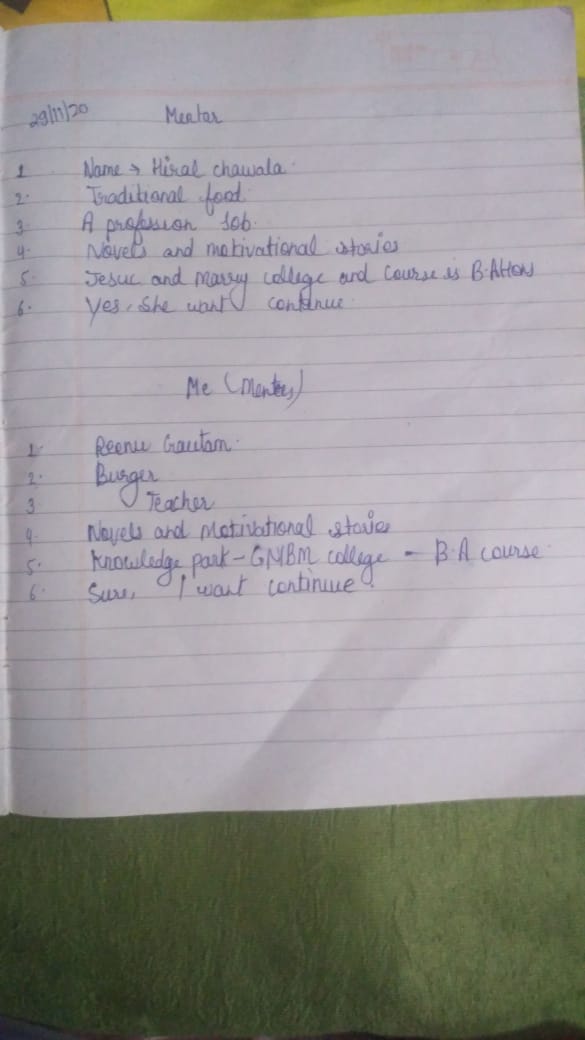 29/11/20 Mentor
1 Name → Hiral chawala.
2. Traditional food.
3. A profession Job.
4. Novels and motivational stories
5. Jesuc and Marry college and Course is B.A Hons
6. Yes, She want continue.
Me (Mentee)
1. Reenu Gautam.
2. Burger
3 Teacher
4. Novels and Motivational stories
5. Knowledge park - GNBM college - B.A course.
6. Sure, I want continue.